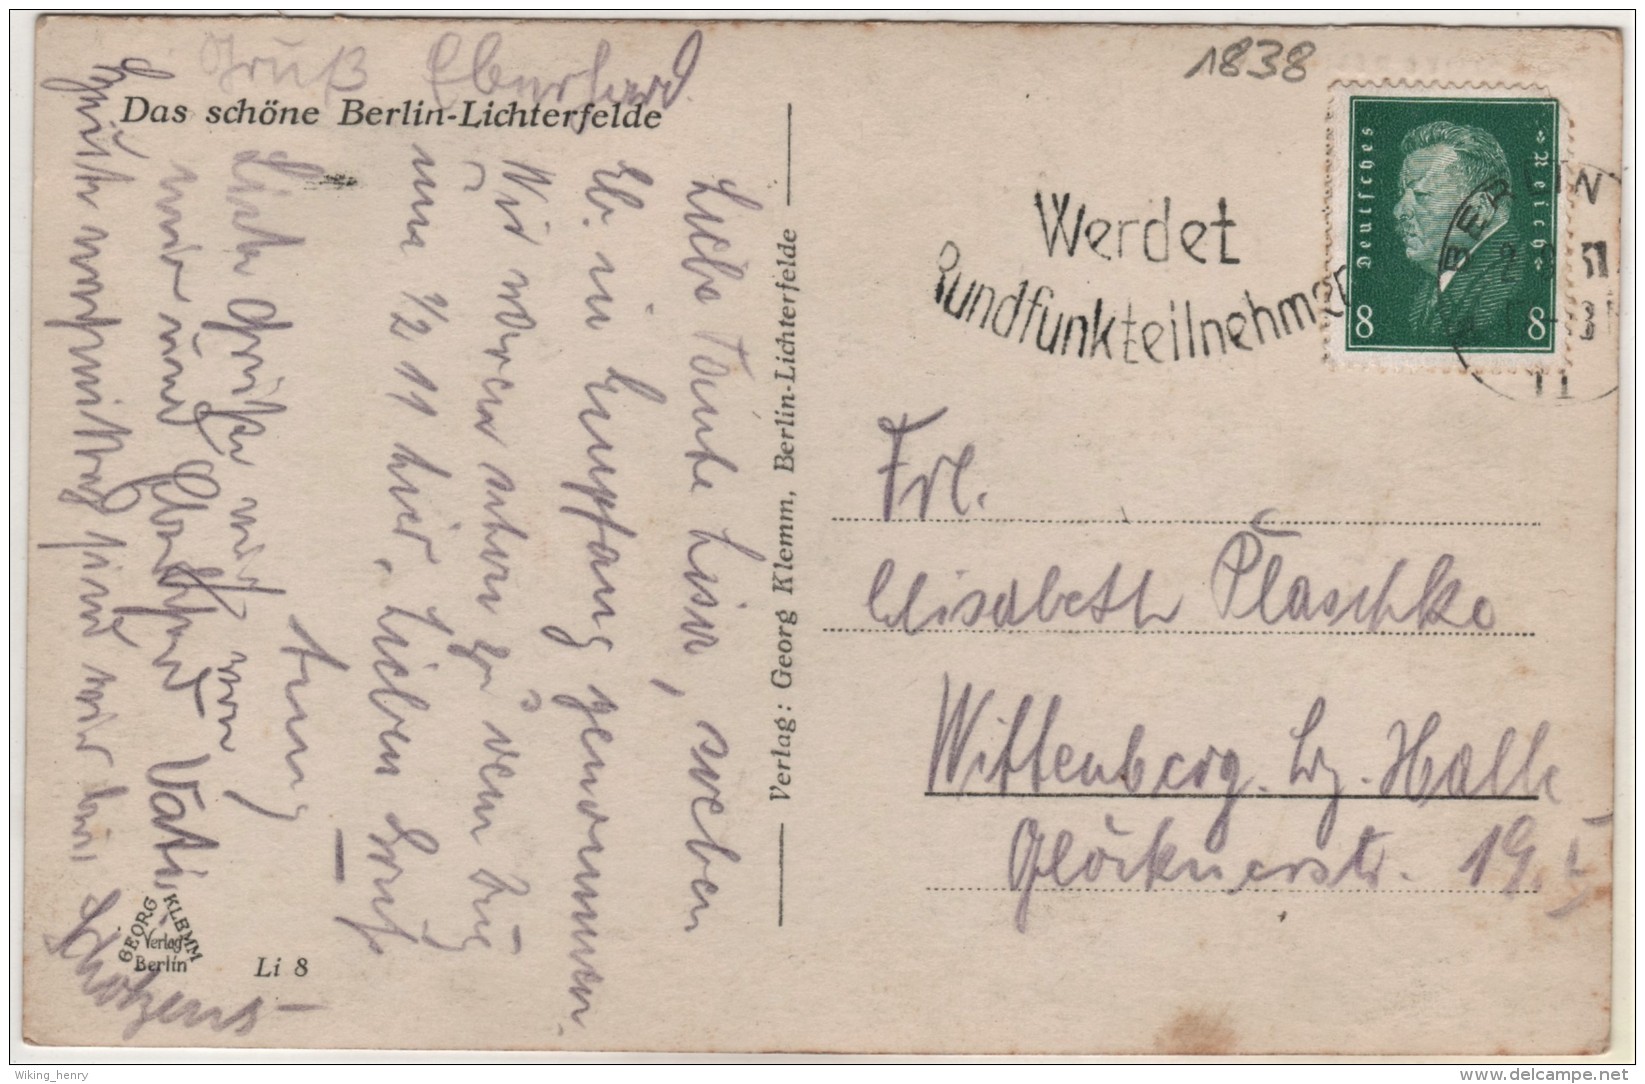 1838
Gruß Eberhard.
Das schöne Berlin-Lichterfelde
Liebe Tante Lisa, soeben
Eb. in Empfang genommen.
Wir waren schon zu dem Zug
um 1/2 11 hier. Lieben Gruß
Tung
Liebe Grüße auch von
mir und Vati
Heute nachmittag sind wir bei
Scholzens
Verlag: Georg Klemm, Berlin-Lichterfelde
GEORG KLEMM
Verlag
Berlin
Li 8
Werdet
Rundfunkteilnehmer
Deutsches Reich
8 8
BERLIN
11
Frl.
Elisabeth Plaschke
Wittenberg. Bz. Halle
Glöcknerstr. 19. I
Wiking_henry
www.delcampe.net